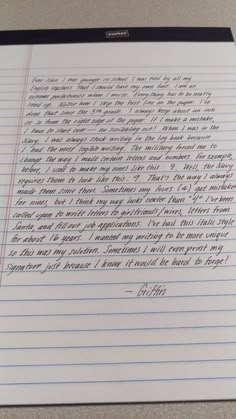 STAPLES
Ever since I was younger in school I was told by all my
English teachers that I should have my own font. I am an
extreme perfectionist when I write. Everything has to be neatly
lined up. Notice how I skip the first line on the paper. I've
done that since the 5th grade. I always keep about an inch
or so from the right edge of the paper. If I make a mistake,
I have to start over — no scribbling out! When I was in the
Navy, I was always stuck writing in the log book because
I had the most legible writing. The military forced me to
change the way I made certain letters and numbers. For example,
before, I used to make my nines like this: 9. Well, the Navy
requires them to look like this: 9. That's the way I always
made them since then. Sometimes my fours (4) get mistaken
for nines, but I think my way looks cooler than "4". I've been
called upon to write letters to girlfriends/wives, letters from
Santa, and fill out job applications. I've had this italic style
for about 16 years. I wanted my writing to be more unique
so this was my solution. Sometimes I will even print my
signature just because I know it would be hard to forge!
— Griffin